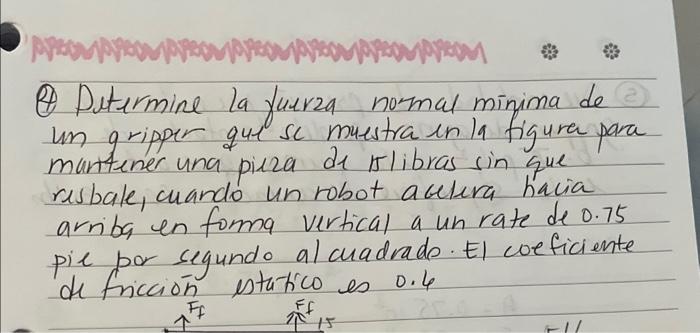 ④ Determine la fuerza normal mínima de
un gripper que se muestra en la figura para
mantener una pieza de 15 libras sin que
resbale, cuando un robot acelera hacia
arriba en forma vertical a un rate de 0.75
pie por segundo al cuadrado. El coeficiente
de fricción estático es 0.6
Ff Ff
15